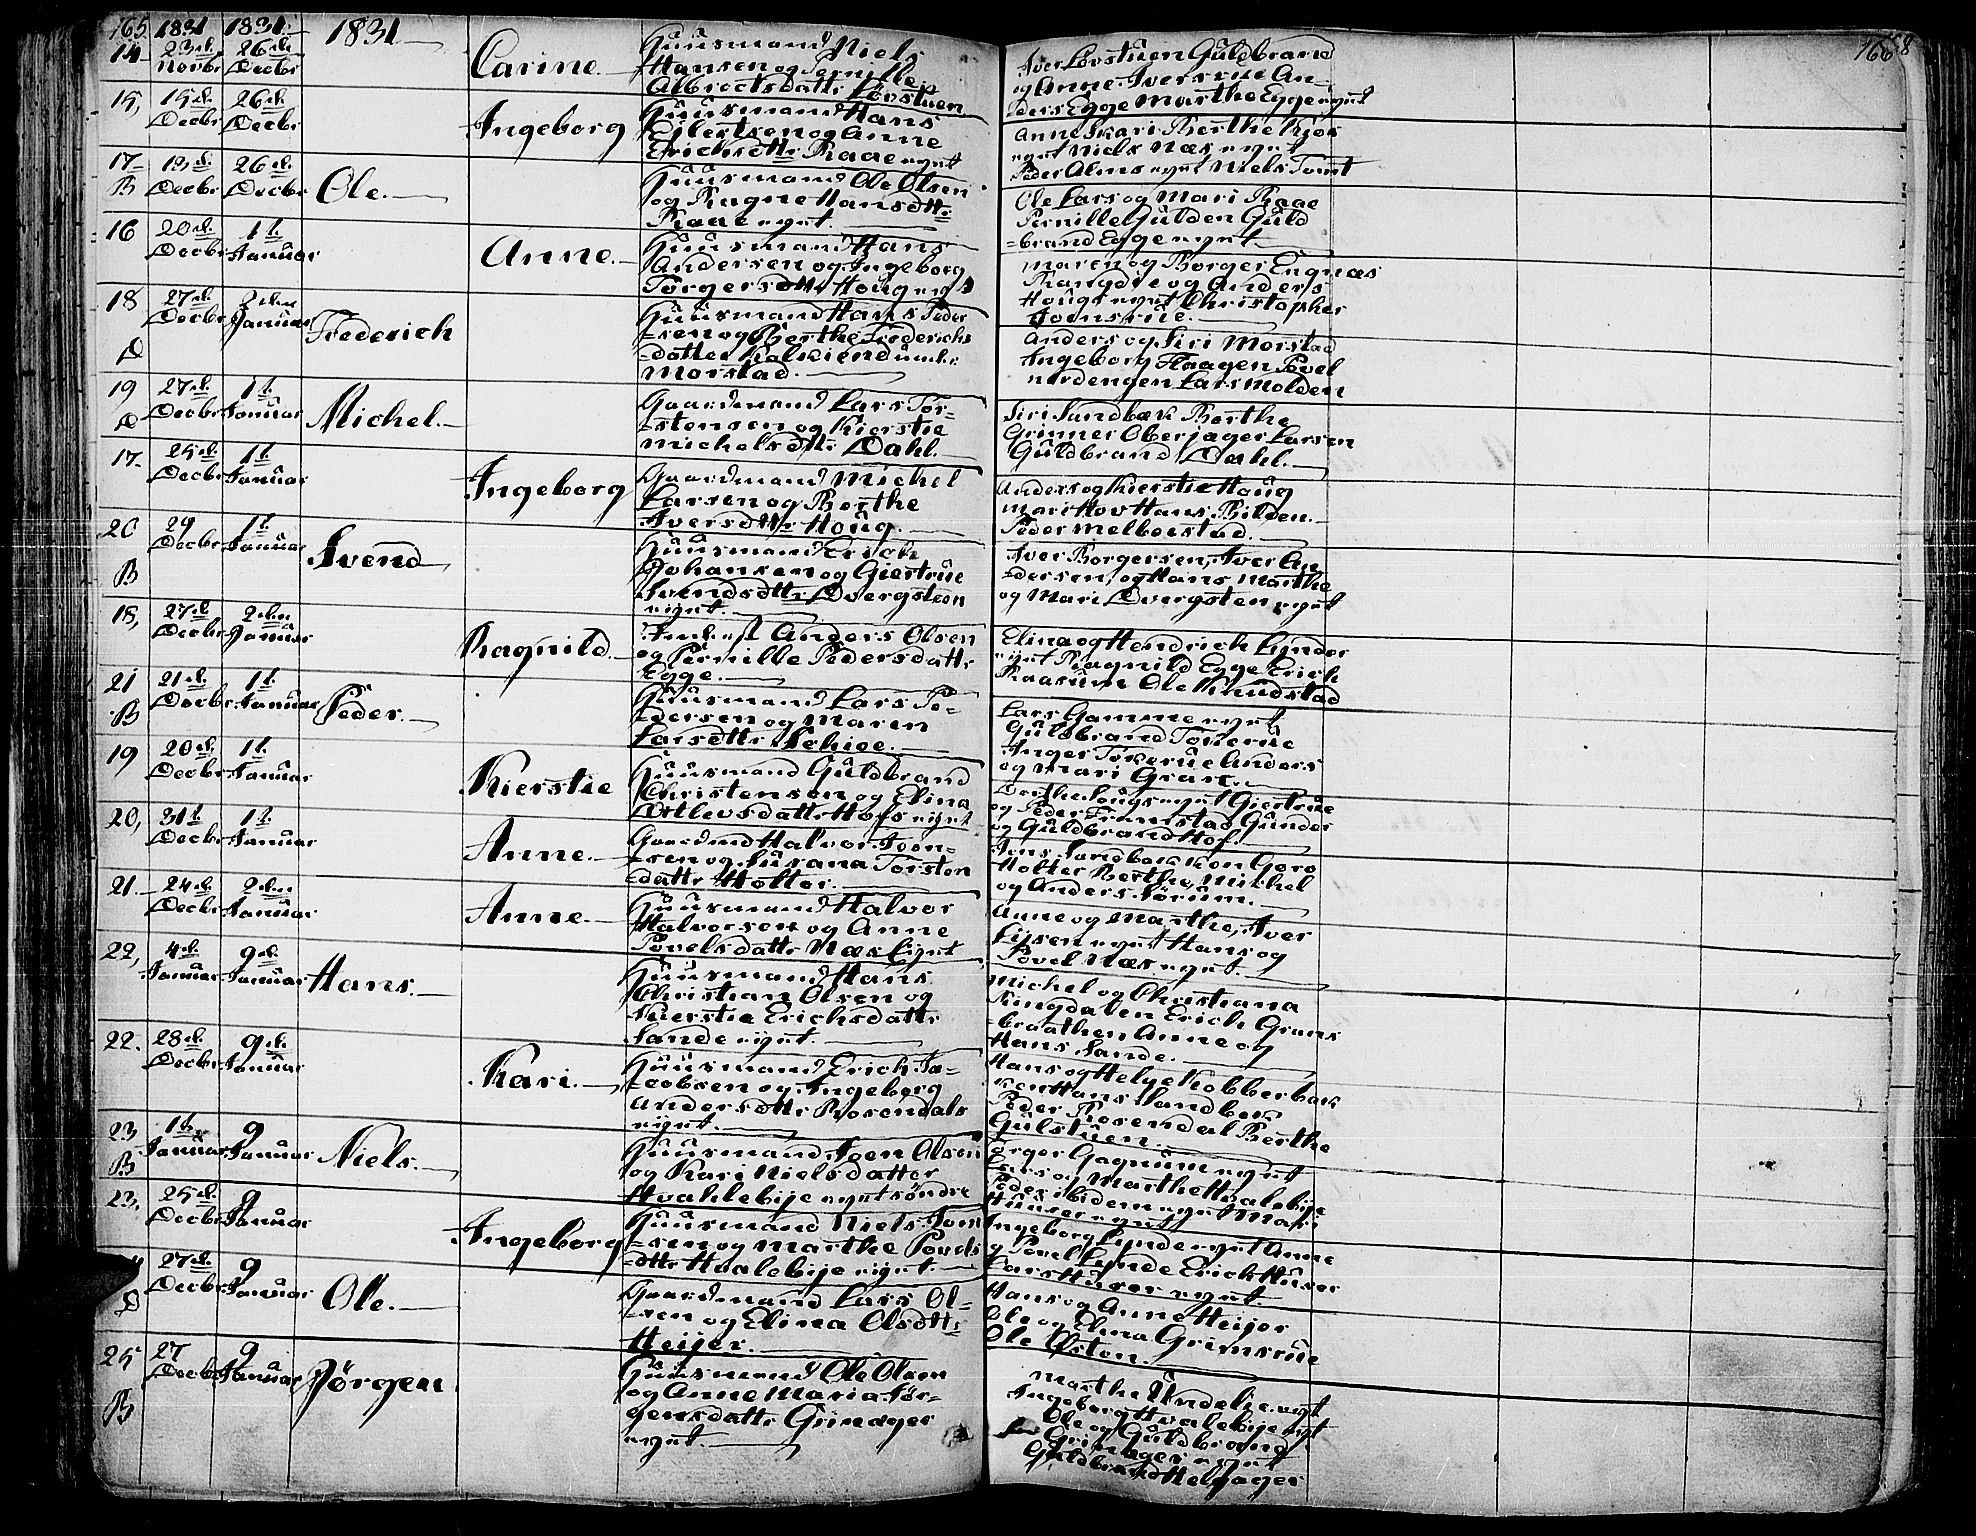 165. 1831 1831. 1831
14 23d. Novbr 26d. Decbr Carine. Huusmand Niels
Hansen og Pernille
Albrectsdattr Løvstuen
Iver Løvstuen Guldbrand
og Anne Iversrue An-
ders Egge Marthe Egge eynt
15, 15d. Decbr 26d. Decbr Ingeborg Huusmand Hans
Eilertsen og Anne
Erichsdttr Raae eynt
Anne Skari Berthe Kiøs
eynt Niels Næs eynt
Peder Alms eynt Niels Tomt
17. B 19d. Decbr 26d. Decbr Ole. Huusmand Ole Olsen
og Ragne Hansdttr
Raae eynt.
Ole Lars og Mari Raae
Pernille Gulden Guld
=brand Egge eynt
16 20d. Decbr 1t. Januar Anne. Huusmand Hans
Andersen og Ingeborg
Torgersdttr Houg
Maren og Borger Engnæs
Rangdie og Anders
Hougs eynt Christopher
Joensrue.
18 D 27d. Decbr 2den Januar Frederich Huusmand Hans Peder
=sen og Berthe Frederichs
=datter Kalviend under
Morstad.
Anders og Siri Morstad
Ingeborg Haagen Povel
nordengen Lars Molden
19 D 27d. Decbr 1t. Januar Michel. Gaardmand Lars Tor-
=stensen og Kierstie
Michelsdttr Dahl.
Siri Sandbæk Berthe
Grinner Oberjager Larsen
Guldbrand Dahl.
17. 25d. Decbr 1t. Januar Ingeborg Gaardmand Michel
Larsen og Berthe
Iversdttr Houg.
Anders og Kierstie Houg
Mari Hov Hans Bilden.
Peder Melboestad.
20 B 29 Decbr 1t. Januar Svend Huusmand Erich
Johansen og Giertrue
Svendsdttr Dvergsteen
eynt.
Iver Borgersen, Iver An
=dersen, og Hans Marthe
og Mari Dvergsten eynt
18, 27d. Decbr 2den Januar Ragnild. Anders Olsen
og Pernille Pedersdattr
Egge.
Elina og Hendrich Lynder
eynt Ragnild Egge Erich
Raasum Ole Knudstad
21 B 21d. Decbr 1t. Januar Peder. Huusmand Lars Pe-
=dersen og Maren
Larsdttr Schiee.
Lars Gamme eynt
Guldbrand Tøserue
Inger Tøserue Anders
og Mari Gran.
19 20d. Decbr 1t. Januar Kierstie Huusmand Guldbrand
Christensen og Elina
Detlevsdattr Hofs eynt.
Berthe Hougs eynt Giertrue
og Peder Framstad Gunder
og Guldbrand Hof.
20, 31t Decbr 1t. Januar Anne. Gaardmd Halvor Joen-
=sen og Susana Torsten
=dattr Holter.
Jens Sandbækken Goro
Holter Berthe, Michel
og Anders Sørum.
21. 24d. Decbr 2den Januar Anne. Huusmand Halvor
Halvorsen og Anne
Povelsdattr Næs Eynt
Anne og Marthe, Iver
eynt Hans og
Povel Næs eynt.
22, 4d. Januar 9d. Januar Hans. Huusmand Hans
Christian Olsen og
Kierstie Erichsdattr
Sande eynt.
Michel og Christiana
Ringdalen Erich Grans
=braathen Anne og
Hans Sande.
22. 28d. Decbr 9d. Januar Kari. Huusmand Erich Ja-
=cobsen og Ingeborg
Andersdttr Rosendals
eynt.
Hans og Helge Kobberbak
=ken Hans Sandbæk
Peder Rosendal Berthe
Gulstuen.
23 B 1t. Januar 9 Januar Niels. Huusmand Joen Olsen
og Kari Nielsdatter
Hvahlebije eynt søndre
Torger Gagnum eynt
Lars og Marthe Hvalebije
Peder ibidem eynt Mari
Huuser eynt
23. 25d. Decbr 9 Januar Ingeborg Huusmand Niels Joen
=sen og Marthe Povels
=dttr Hvalebije eynt.
Ingeborg Lynder eynt Anne
og Povel Lynde Erich Huser
Lars Huser eynt.
D 27d. Decbr 9 Januar Ole. Gaardmand Lars Ol-
=sen og Elina Olsdttr
Heijer.
Hans og Anne Heijer
Ole og Elina Grimsrue
Ole Østen.
25 B 27 Decbr 9 Januar Jørgen Huusmand Ole Olsen
og Anne Maria Jør-
gensdattr Grinager
eynt.
Marthe Undelie eynt
Ingeborg Hvalebije eynt
Ole og Guldbrand
Grinager eynt
Guldbrand Helgager
166